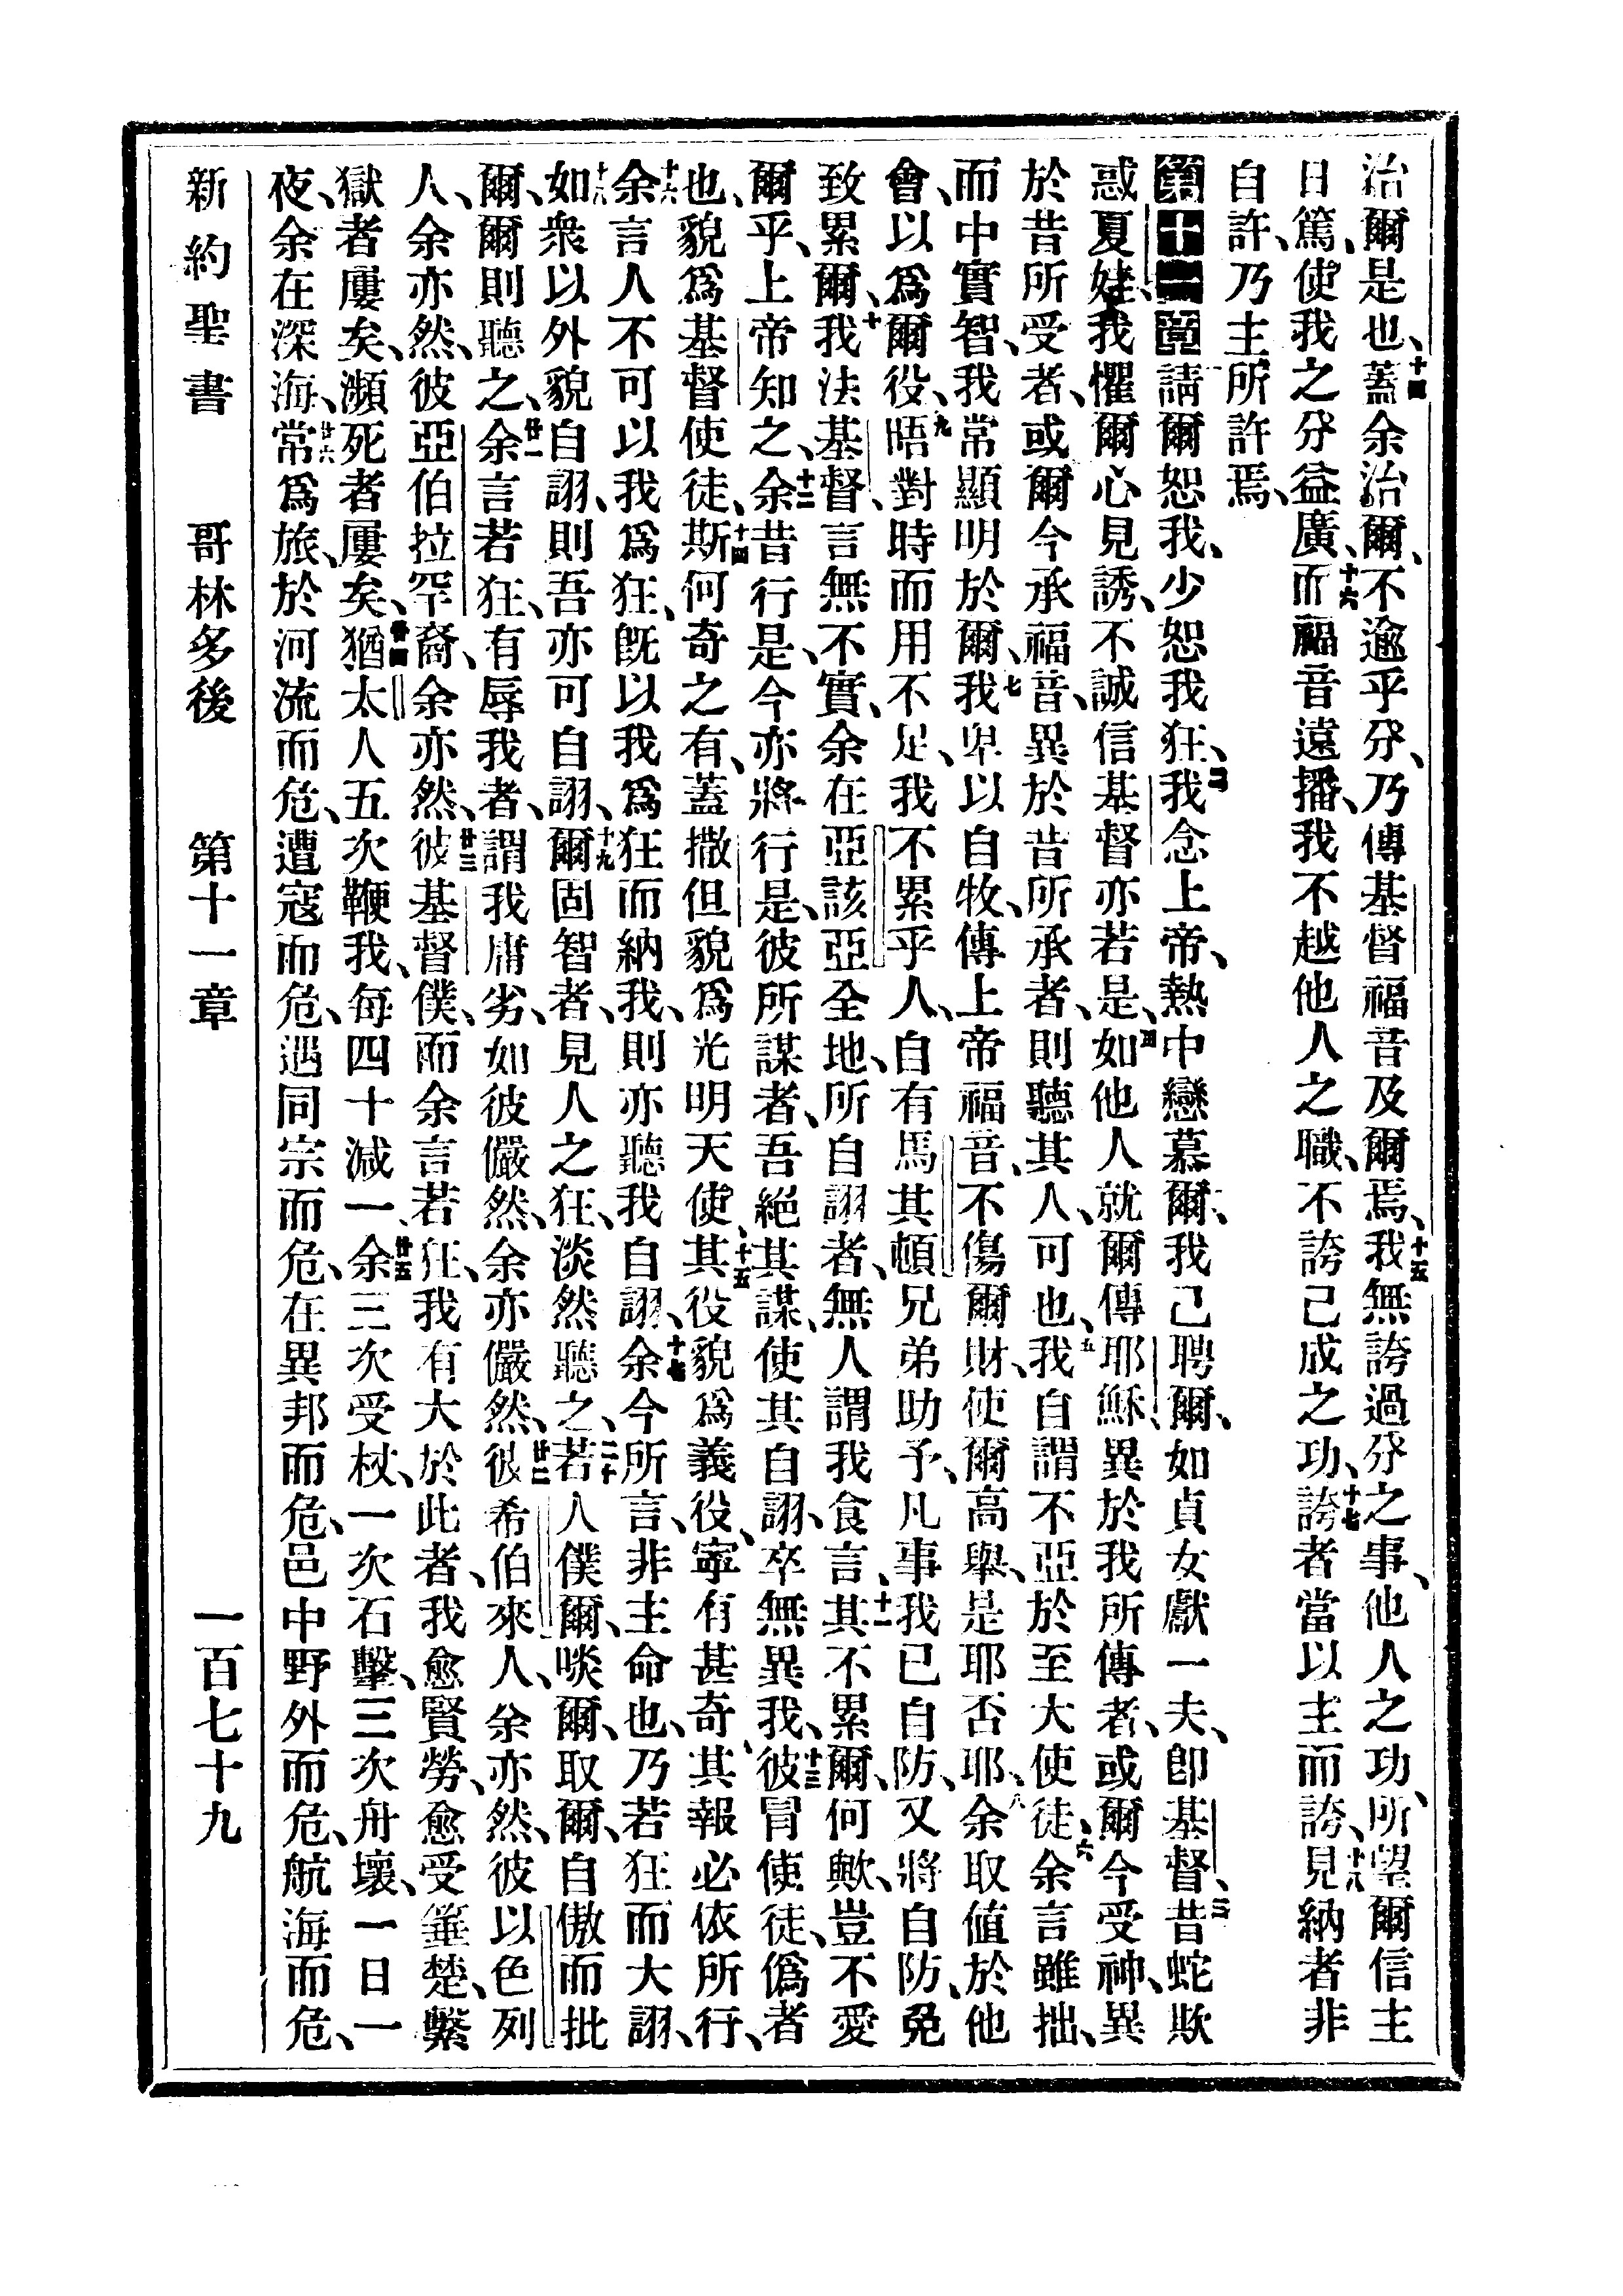 治爾是也、十四蓋余治爾、不逾乎分、乃傳基督福音及爾焉、十五我無誇過分之事、他人之功、所望爾信主
日篤、使我之分益廣、十六而福音遠播、我不越他人之職、不誇己成之功、十七誇者當以主而誇、十八見納者非
自許、乃主所許焉、
第十一章請爾恕我、少恕我狂、二我念上帝、熱中戀慕爾、我已聘爾、如貞女獻一夫、卽基督、三昔蛇欺
惑夏娃、我懼爾心見誘、不誠信基督亦若是、四如他人就爾傳耶穌、異於我所傳者、或爾今受神、異
於昔所受者、或爾今承福音、異於昔所承者、則聽其人、可也、五我自謂不亞於至大使徒、六余言雖拙、
而中實智、我常顯明於爾、七我卑以自牧、傳上帝福音、不傷爾財、使爾高舉、是耶否耶、八余取值於他
會、以爲爾役、九晤對時而用不足、我不累乎人、自有馬其頓兄弟助予、凡事我已自防、又將自防、免
致累爾、十我法基督、言無不實、余在亞該亞全地、所自詡者、無人謂我食言、十一其不累爾、何歟、豈不愛
爾乎、上帝知之、十二余昔行是、今亦將行是、彼所謀者、吾絕其謀、使其自詡、卒無異我、十三彼冒使徒、僞者
也、貌爲基督使徒、十四斯何奇之有、蓋撒但貌爲光明天使、十五其役貌爲義役、寧有甚奇、其報必依所行、
十六余言人不可以我爲狂、旣以我爲狂而納我、則亦聽我自詡、十七余今所言、非主命也、乃若狂而大詡、
十八如衆以外貌自詡、則吾亦可自詡、十九爾固智者、見人之狂、淡然聽之、二十若人僕爾、啖爾、取爾、自傲而批
爾、爾則聽之、廿一余言若狂、有辱我者、謂我庸劣、如彼儼然、余亦儼然、廿二彼希伯來人、余亦然、彼以色列
人、余亦然、彼亞伯拉罕裔、余亦然、廿三彼基督僕、而余言若狂、我有大於此者、我愈賢勞、愈受箠楚、繫
獄者屢矣、瀕死者屢矣、廿四猶太人五次鞭我、每四十減一、廿五余三次受杖、一次石擊、三次舟壞、一日一
夜、余在深海、廿六常爲旅、於河流而危、遭寇而危、遇同宗而危、在異邦而危、邑中野外而危、航海而危、
新約聖書　哥林多後　第十一章　一百七十九